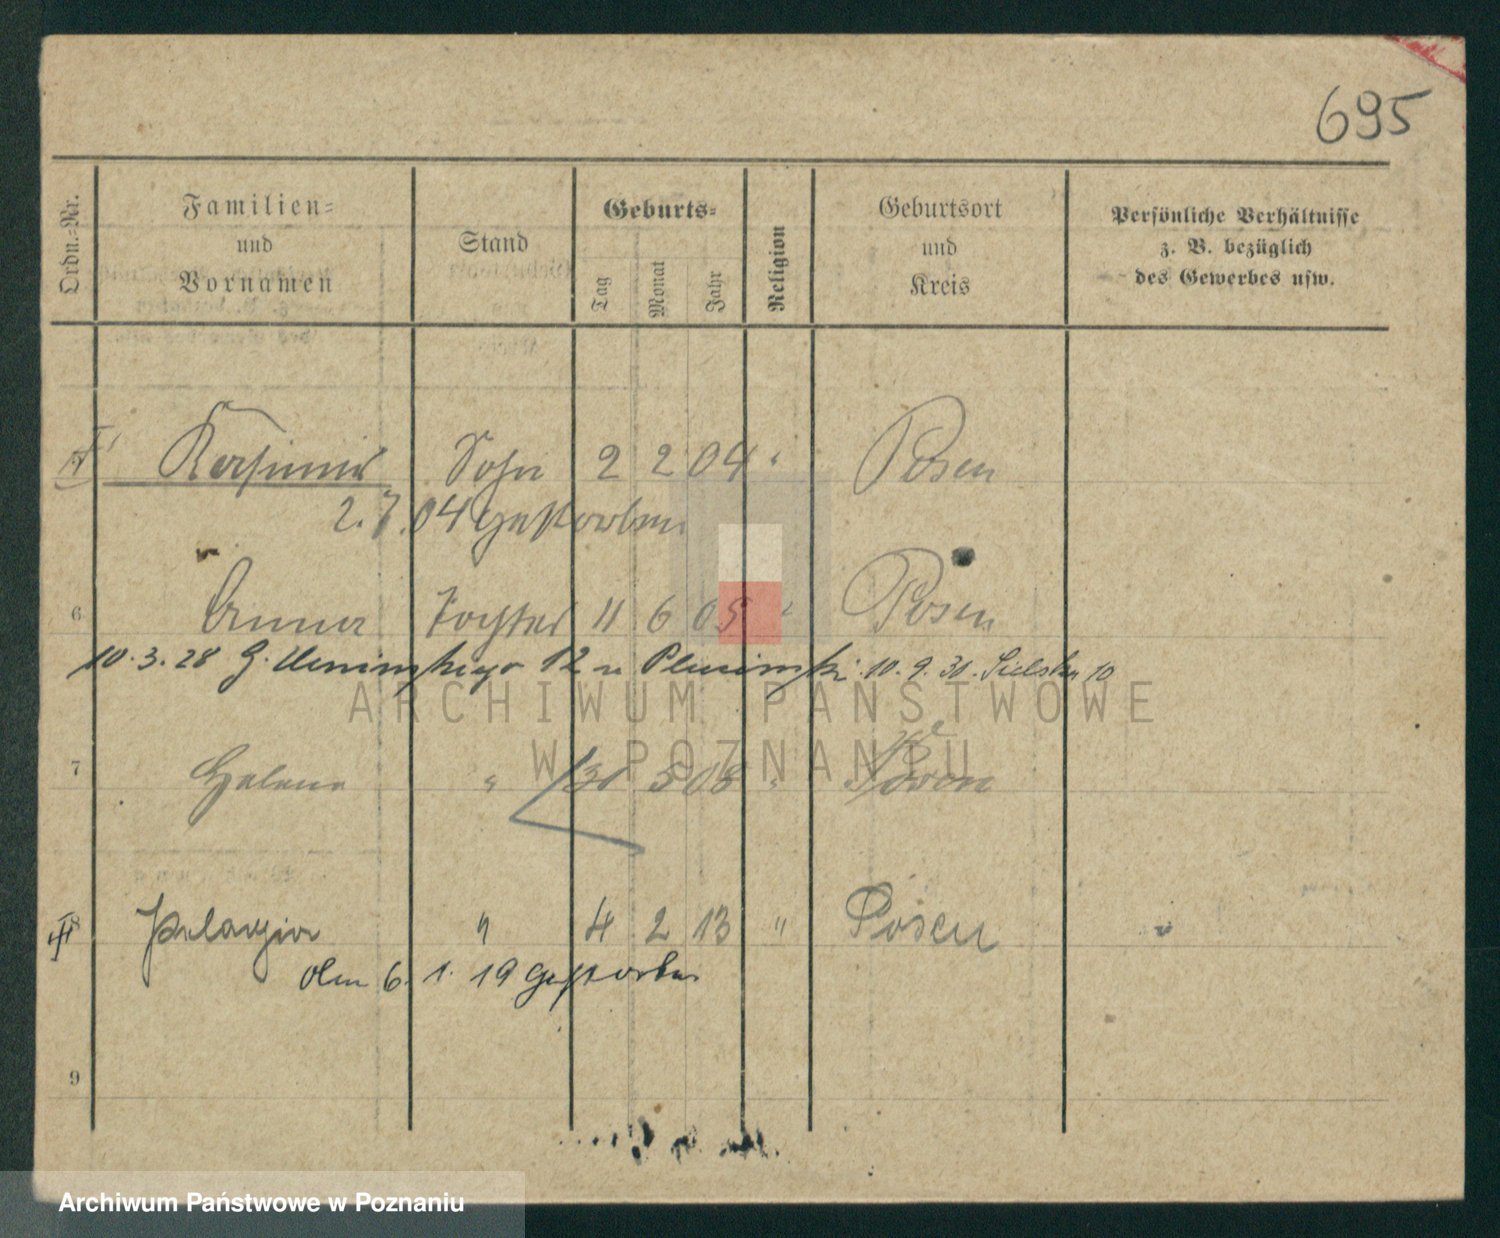 695
Ordn.-Nr.
Familien-
und
Vornamen
Stand
Geburts-
Tag
Monat
Jahr
Religion
Geburtsort
und
Kreis
Persönliche Verhältnisse
z. B. bezüglich
des Gewerbes usw.
Kasimir Sohn 2 2 04 " Posen
2.7.04 gestorben
6 Anna Tochter 11 6 05 " Posen
10.3.28 G. 12 u 10.9.31. 10
ARCHIWUM PAŃSTWOWE
W POZNANIU
7 Helene " 31 5 08 " Posen
Pelagia " 4 2 13 " Posen
am 6. 1. 19 gestorben
9
Archiwum Państwowe w Poznaniu